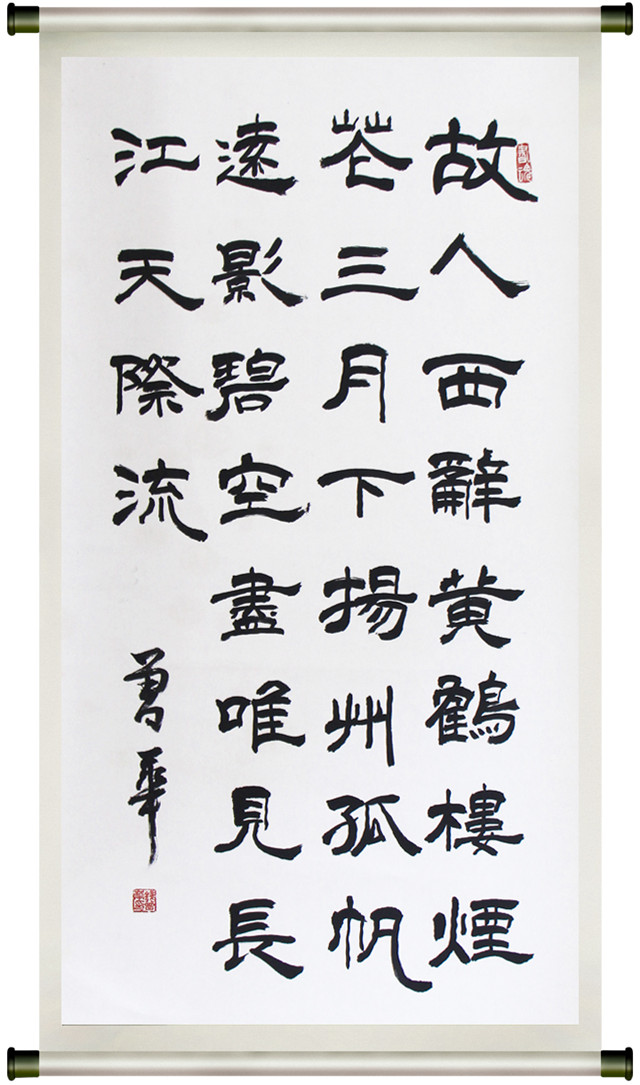 故人西辭黄鶴樓煙
花三月下揚州孤帆
遠影碧空盡唯見長
江天際流
曾華